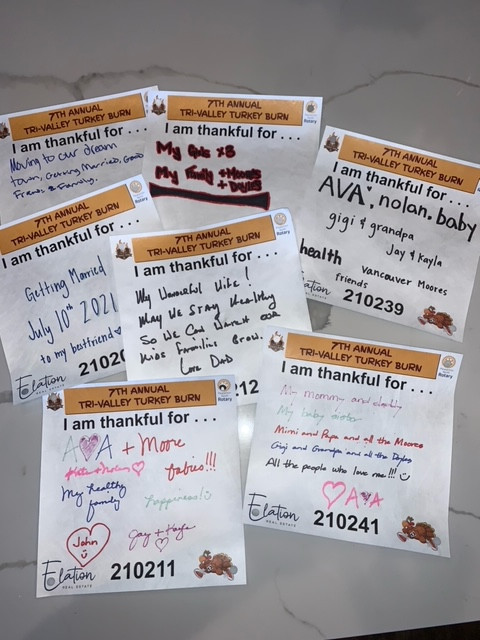 7TH ANNUAL
TRI-VALLEY TURKEY BURN
I am thankful for . . .
Moving to our dream
town, Getting Married, Good
Friends & Family.
7TH ANNUAL
TRI-VALLEY TURKEY BURN
Rotary
I am thankful for . . .
My Girls x3
My Family + Moores
+ Doyles
7TH ANNUAL
TRI-VALLEY TURKEY BURN
I am thankful for . . .
AVA, nolan, baby
gigi & grandpa
Jay & Kayla
health
Vancouver Moores
friends
Elation
210239
7TH ANNUAL
TRI-VALLEY TURKEY BURN
I am thankful for . . .
Getting Married
July 10th 2021
to my bestfriend
Elation
7TH ANNUAL
TRI-VALLEY TURKEY BURN
I am thankful for . . .
My Wonderful Wife!
May we STAY Healthy
So we Can Watch our
Kids Families Grow.
Love Dad
7TH ANNUAL
TRI-VALLEY TURKEY BURN
Rotary
I am thankful for . . .
AVA + Moore
babies!!!
My healthy
family
happiness!
John
Jay + Kayla
Elation
REAL ESTATE
210211
7TH ANNUAL
TRI-VALLEY TURKEY BURN
Rotary
I am thankful for . . .
My mommy and daddy
My baby sister
Mimi and Papa and all the Moores
Gigi and Grandpa and all the Doyles
All the people who love me!!!
AVA
Elation
REAL ESTATE
210241